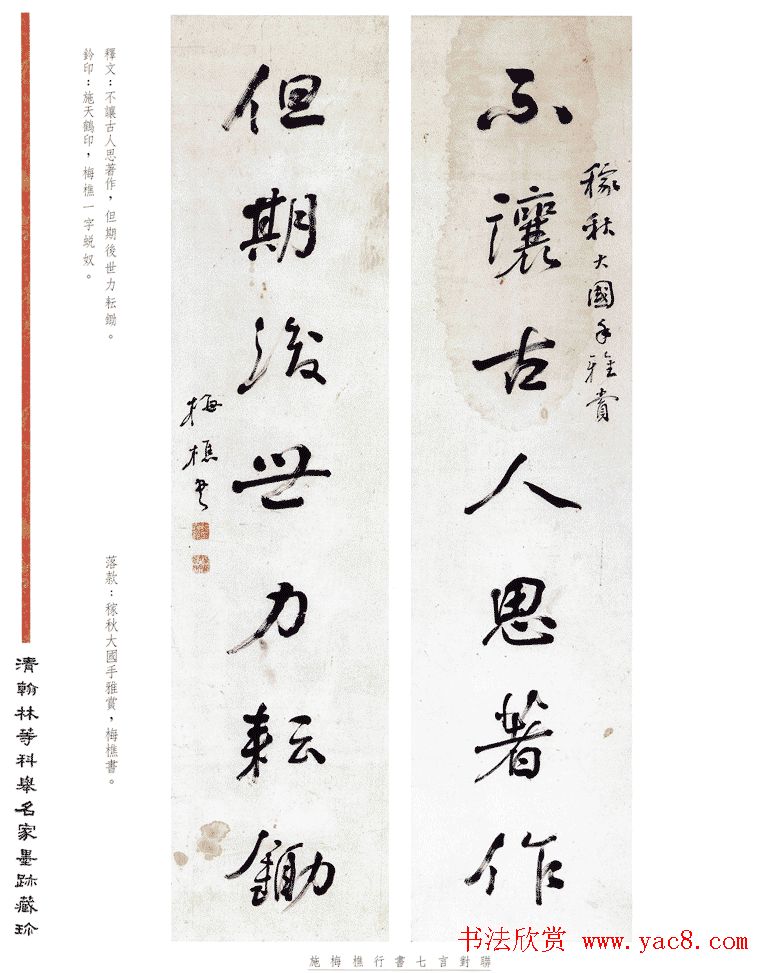 不讓古人思著作
稼秋大國手雅賞
但期後世力耘鋤
梅樵書
釋文：不讓古人思著作，但期後世力耘鋤。
鈐印：施天鶴印，梅樵一字蛻奴。
落款：稼秋大國手雅賞，梅樵書。
清翰林等科舉名家墨跡藏珍
施梅樵行書七言對聯
书法欣赏 www.yac8.com